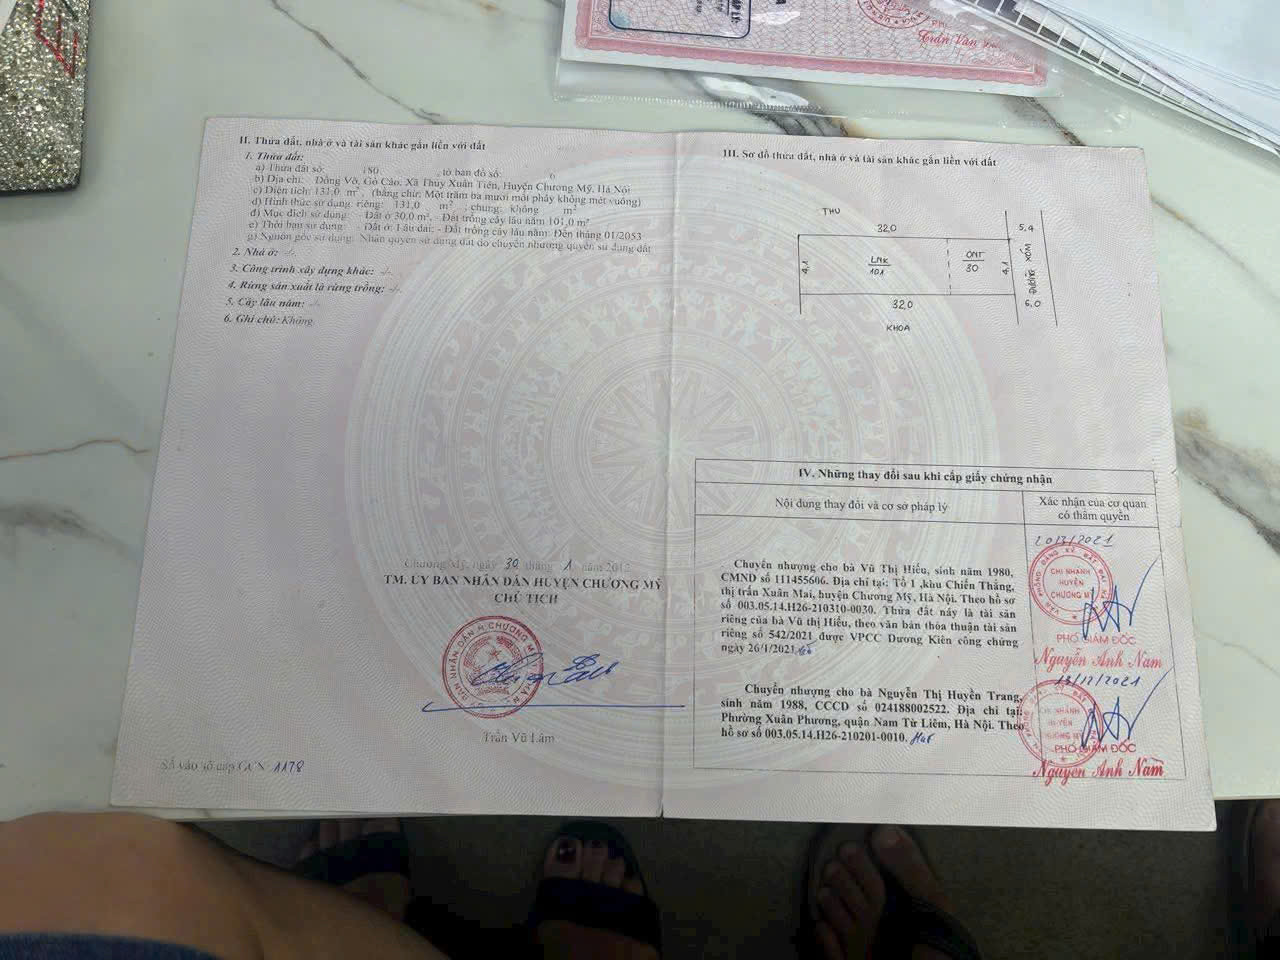 II. Thửa đất, nhà ở và tài sản khác gắn liền với đất
1. Thửa đất:
a) Thửa đất số: 180 , tờ bản đồ số: 6
b) Địa chỉ: Đồng Vỡ, Gò Cáo, Xã Thủy Xuân Tiên, Huyện Chương Mỹ, Hà Nội
c) Diện tích: 131,0 m², (bằng chữ: Một trăm ba mươi mốt phẩy không mét vuông)
d) Hình thức sử dụng: riêng: 131,0 m²; chung: không m²
đ) Mục đích sử dụng: - Đất ở 30,0 m², - Đất trồng cây lâu năm 101,0 m²
e) Thời hạn sử dụng: - Đất ở: Lâu dài: - Đất trồng cây lâu năm: Đến tháng 01/2053
g) Nguồn gốc sử dụng: Nhận quyền sử dụng đất do chuyển nhượng quyền sử dụng đất
2. Nhà ở: -/-
3. Công trình xây dựng khác: -/-
4. Rừng sản xuất là rừng trồng: -/-
5. Cây lâu năm: -/-
6. Ghi chú: Không
Chương Mỹ, ngày 30 tháng 1 năm 2012
TM. ỦY BAN NHÂN DÂN HUYỆN CHƯƠNG MỸ
CHỦ TỊCH
Trần Vũ Lâm
Số vào sổ cấp GCN: 1178
III. Sơ đồ thửa đất, nhà ở và tài sản khác gắn liền với đất
THU
32,0
5,4
4,1
LNK
101
ONT
30
4,1
ĐƯỜNG XÓM
32,0
6,0
KHOA
IV. Những thay đổi sau khi cấp giấy chứng nhận
Nội dung thay đổi và cơ sở pháp lý
Xác nhận của cơ quan
có thẩm quyền
Chuyển nhượng cho bà Vũ Thị Hiếu, sinh năm 1980,
CMND số 111455606. Địa chỉ tại: Tổ 1 ,khu Chiến Thắng,
thị trấn Xuân Mai, huyện Chương Mỹ, Hà Nội. Theo hồ sơ
số 003.05.14.H26-210310-0030. Thửa đất này là tài sản
riêng của bà Vũ thị Hiếu, theo văn bản thỏa thuận tài sản
riêng số 542/2021 được VPCC Dương Kiên công chứng
ngày 26/1/2021
CHI NHÁNH
HUYỆN
CHƯƠNG MỸ
PHÓ GIÁM ĐỐC
Nguyễn Anh Nam
Chuyển nhượng cho bà Nguyễn Thị Huyền Trang,
sinh năm 1988, CCCD số 024188002522. Địa chỉ tại:
Phường Xuân Phương, quận Nam Từ Liêm, Hà Nội. Theo
hồ sơ số 003.05.14.H26-210201-0010.
13/12/2021
CHI NHÁNH
HUYỆN
CHƯƠNG MỸ
PHÓ GIÁM ĐỐC
Nguyễn Anh Nam